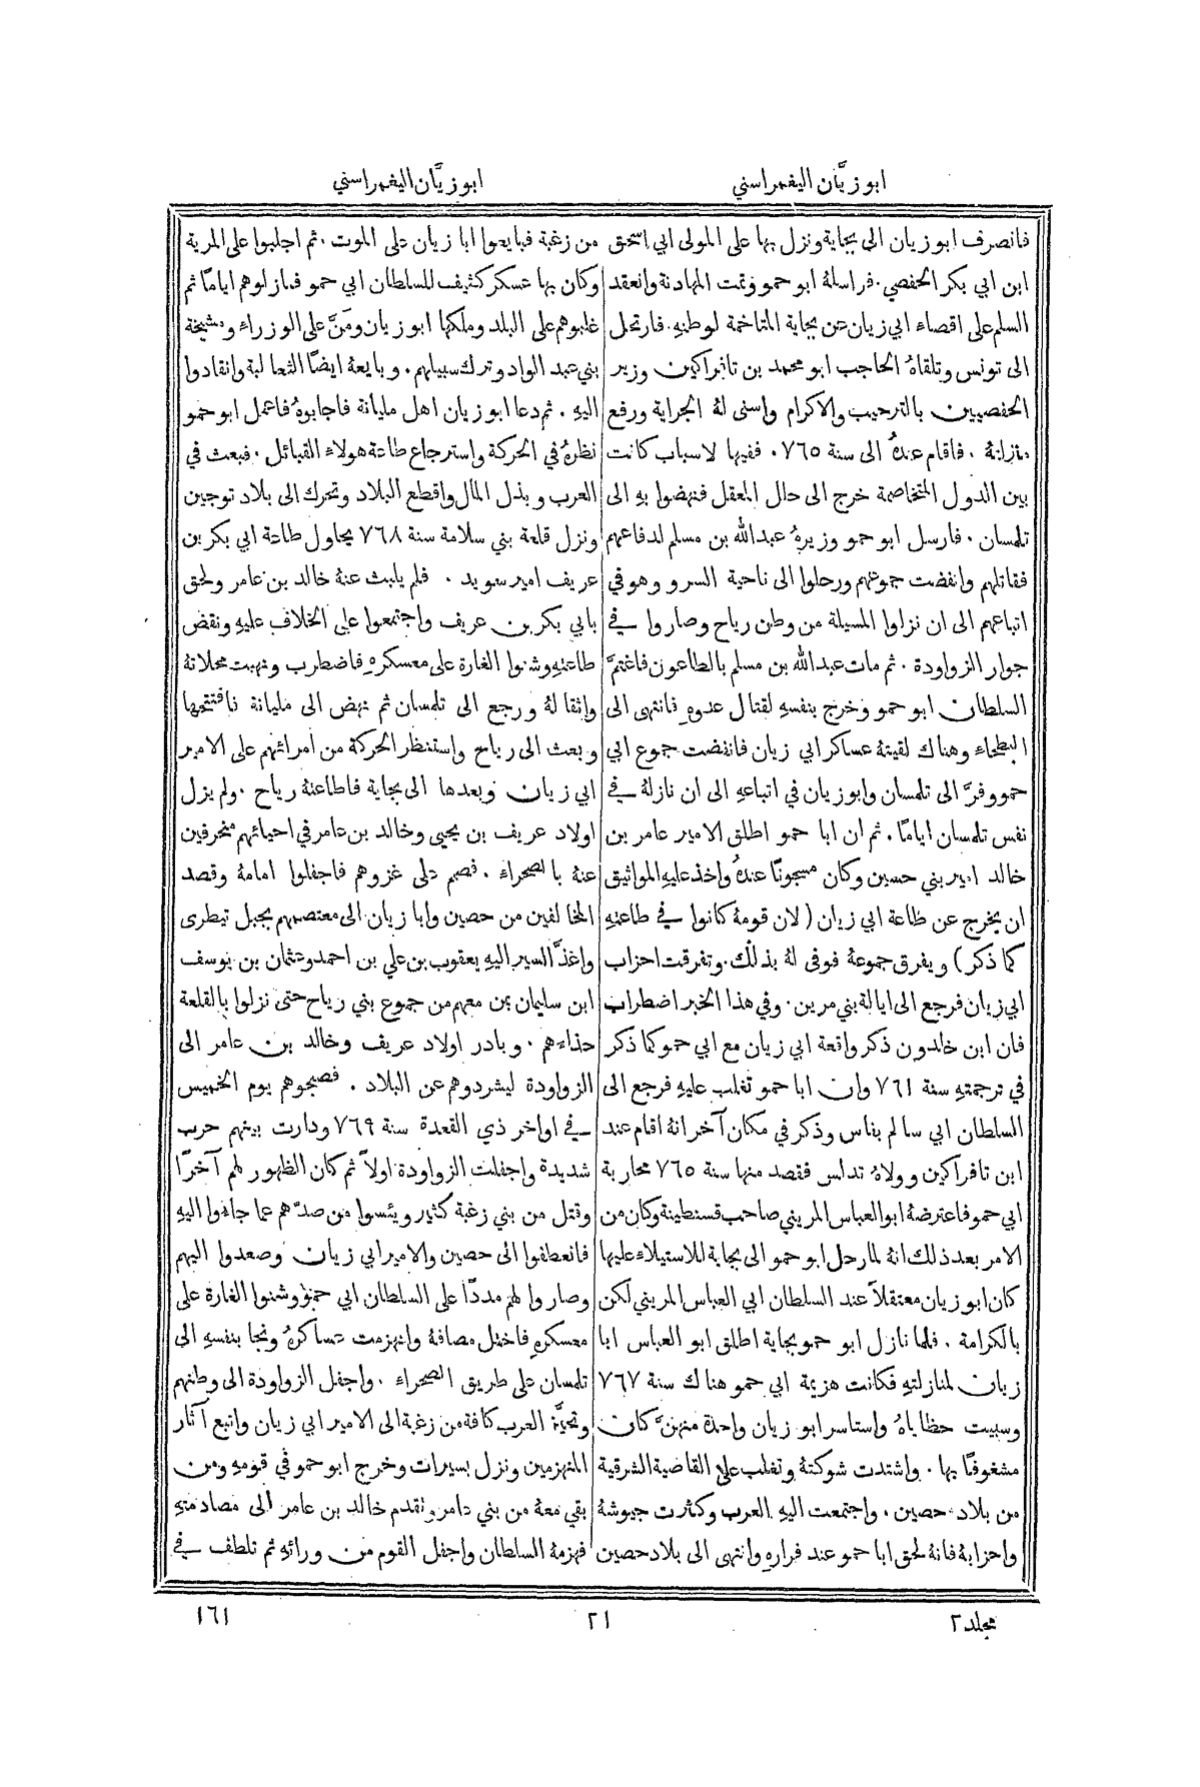 ابو زيَّان اليغمراسني
ابو زيَّان اليغمراسني
فانصرف ابو زيان الى بجاية ونزل بها على المولى ابي اسحق
ابن ابي بكر الحفصي. فراسلهُ ابو حمو وتمت المهادنة وانعقد
السلم على اقصاء ابي زيان عن بجاية المتاخمة لوطنهِ. فارتحل
الى تونس وتلقاهُ الحاجب ابو محمد بن تافراكين وزير
الحفصيين بالترحيب والاكرام واسنى لهُ الجراية ورفع
منزلتهُ. فاقام عندهُ الى سنة ٧٦٥. ففيها لاسباب كانت
بين الدول المتخاصمة خرج الى حال المعقل فنهضوا بهِ الى
تلمسان. فارسل ابو حمو وزيرهُ عبدالله بن مسلم لدفاعهم
فقاتلهم وانفضت جموعهم ورحلوا الى ناحية السرو وهو في
اتباعهم الى ان نزلوا المسيلة من وطن رياح وصاروا في
جوار الزواودة. ثم مات عبدالله بن مسلم بالطاعون فاغتمَّ
السلطان ابو حمو وخرج بنفسهِ لقتال عدوهِ فانتهى الى
البطحاء وهناك لقيتهُ عساكر ابي زيان فانفضت جموع ابي
حمو وفرَّ الى تلمسان وابو زيان في اتباعهِ الى ان نازلهُ في
نفس تلمسان ايامًا. ثم ان ابا حمو اطلق الامير عامر بن
خالد امير بني حسين وكان مسجونًا عندهُ واخذ عليهِ المواثيق
ان يخرج عن طاعة ابي زيان (لان قومهُ كانوا في طاعتهِ
كما ذكر) ويفرق جموعهُ فوفى لهُ بذلك. وتفرقت احزاب
ابي زيان فرجع الى ايالة بني مرين. وفي هذا الخبر اضطراب
فان ابن خلدون ذكر واقعة ابي زيان مع ابي حمو كما ذكر
في ترجمتهِ سنة ٧٦١ وان ابا حمو تغلب عليهِ فرجع الى
السلطان ابي سالم بفاس وذكر في مكان آخر انهُ اقام عند
ابن تافراكين وولاهُ تدلس فقصد منها سنة ٧٦٥ محاربة
ابي حمو فاعترضهُ ابو العباس المريني صاحب قسنطينة وكان من
الامر بعد ذلك انهُ لما رحل ابو حمو الى بجاية للاستيلاء عليها
كان ابو زيان معتقلاً عند السلطان ابي العباس المريني لكن
بالكرامة. فلما نازل ابو حمو بجاية اطلق ابو العباس ابا
زيان لمنازلتهِ فكانت هزيمة ابي حمو هناك سنة ٧٦٧
وسبيت حظاياهُ واستاسر ابو زيان واحدة منهنَّ كان
مشغوفًا بها. واشتدت شوكتهُ وتغلب على القاضية الشرقية
من بلاد حصين. واجتمعت اليهِ العرب وكثرت جيوشهُ
واحزابهُ فانهُ لحق ابا حمو عند فرارهِ وانتهى الى بلاد حصين
من زغبة فبايعوا ابا زيان على الموت. ثم اجلبوا على المرية
وكان بها عسكر كثيف للسلطان ابي حمو فنازلوهم ايامًا ثم
غلبوهم على البلد وملكها ابو زيان ومَنَّ على الوزراء ومشيخة
بني عبد الواد وترك سبيلهم. وبايعهُ ايضًا الثعالبة وانقادوا
اليهِ. ثم دعا ابو زيان اهل مليانة فاجابوهُ فاعمل ابو حمو
نظرهُ في الحركة واسترجاع طاعة هولاء القبائل. فبعث في
العرب وبذل المال واقطع البلاد وتحرك الى بلاد توجين
ونزل قلعة بني سلامة سنة ٧٦٨ يحاول طاعة ابي بكر بن
عريف امير سويد. فلم يلبث عنهُ خالد بن عامر ولحق
بابي بكر بن عريف واجتمعوا على الخلاف عليهِ ونقض
طاعتهِ وشنوا الغارة على معسكرهِ فاضطرب ونهبت محلاتهُ
واثقالهُ ورجع الى تلمسان ثم نهض الى مليانة فافتتحها
وبعث الى رياح واستنظر الحركة من امرائهم على الامير
ابي زيان وبعدها الى بجاية فاطاعتهُ رياح. ولم يزل
اولاد عريف بن يحيى وخالد بن عامر في احيائهم منحرفين
عنهُ بالصحراء. فصمم على غزوهم فاجفلوا امامهُ وقصد
المخالفين من حصين وابا زيان الى معتصمهم بجبل تيطرى
واغذَّ السير اليهِ يعقوب بن علي بن احمد وعثمان بن يوسف
ابن سليمان بمن معهم من جموع بني رياح حتى نزلوا بالقلعة
حذاءهم. وبادر اولاد عريف وخالد بن عامر الى
الزواودة ليشردوهم عن البلاد. فصبحوهم يوم الخميس
في اواخر ذي القعدة سنة ٧٦٩ ودارت بينهم حرب
شديدة واجفلت الزواودة اولاً ثم كان الظهور لهم آخرًا
وقتل من بني زغبة كثير ويئسوا من صدّهم عما جاءُوا اليهِ
فانعطفوا الى حصين والامير ابي زيان وصعدوا اليهم
وصاروا لهم مددًا على السلطان ابي حمو وشنوا الغارة على
معسكرهِ فاختل مصافهُ وانهزمت عساكرهُ ونجا بنفسهِ الى
تلمسان على طريق الصحراء. واجفل الزواودة الى وطنهم
وتحيَّز العرب كافة من زغبة الى الامير ابي زيان واتبع آثار
المنهزمين ونزل بسيرات وخرج ابو حمو في قومهِ ومن
بقي معهُ من بني عامر وتقدم خالد بن عامر الى مصادمتهِ
فهزمهُ السلطان واجفل القوم من ورائهِ ثم تلطف في
مجلد ٢
٢١
١٦١